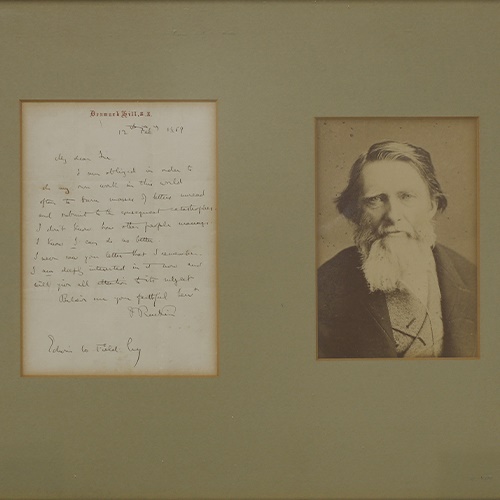 Denmark Hill, S.E.
12 Feb 1869
My dear Sir
I am obliged in order to
do my own work in this world
often to leave masses of letters unread
and submit to the consequent catastrophes
I don't know how other people manage
I know I can do no better
I never saw your letter that I remember.
I am deeply interested in it now and
will give all attention to its subject
Believe me your faithful Serv^t
J Ruskin
Edwin W Field Esq